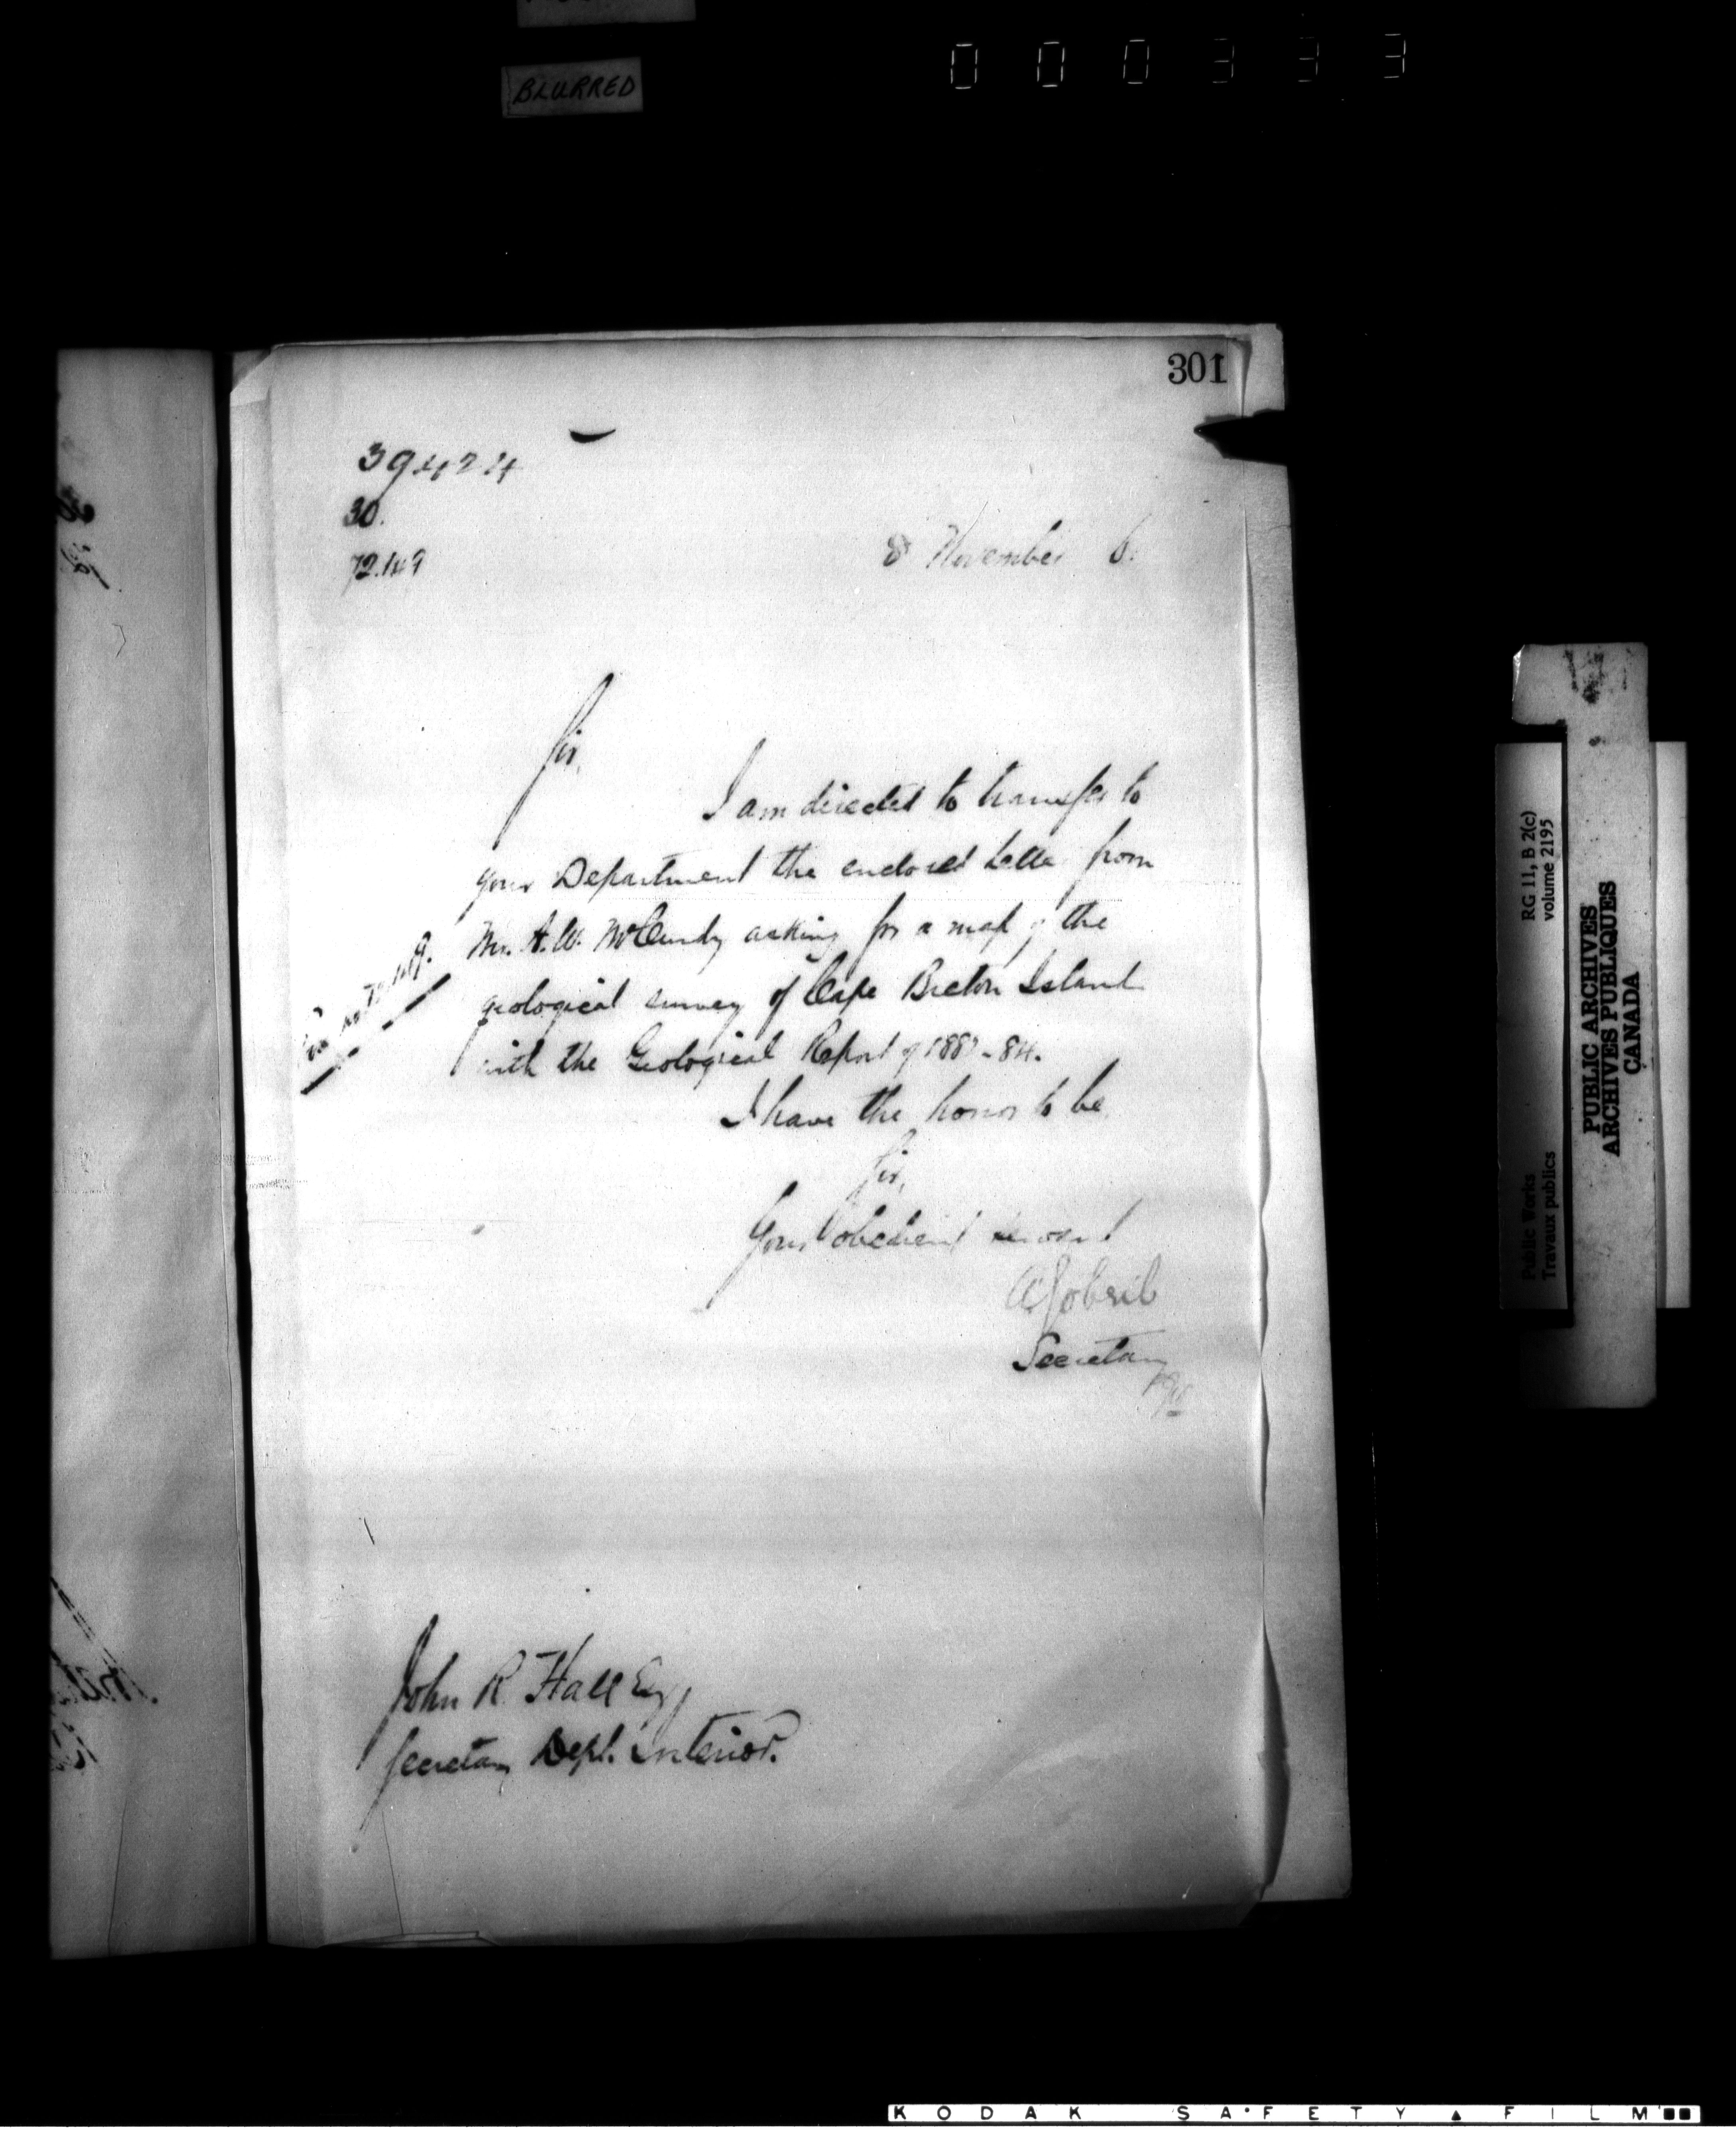 BLURRED
000333
301
39424
30.
72149
8 November 6.
Sir,
I am directed to transfer to
your Department the enclosed letter from
Mr. A. W. McCurdy asking for a map of the
geological survey of Cape Breton Island
with the Geological Report of 1883-84.
I have the honor to be
Sir,
Your obedient servant
A Gobeil
Secretary
John R. Hall Esq
Secretary Dept. Interior.
RG 11, B 2(c)
volume 2195
Public Works
Travaux publics
PUBLIC ARCHIVES
ARCHIVES PUBLIQUES
CANADA
KODAK SAFETY FILM